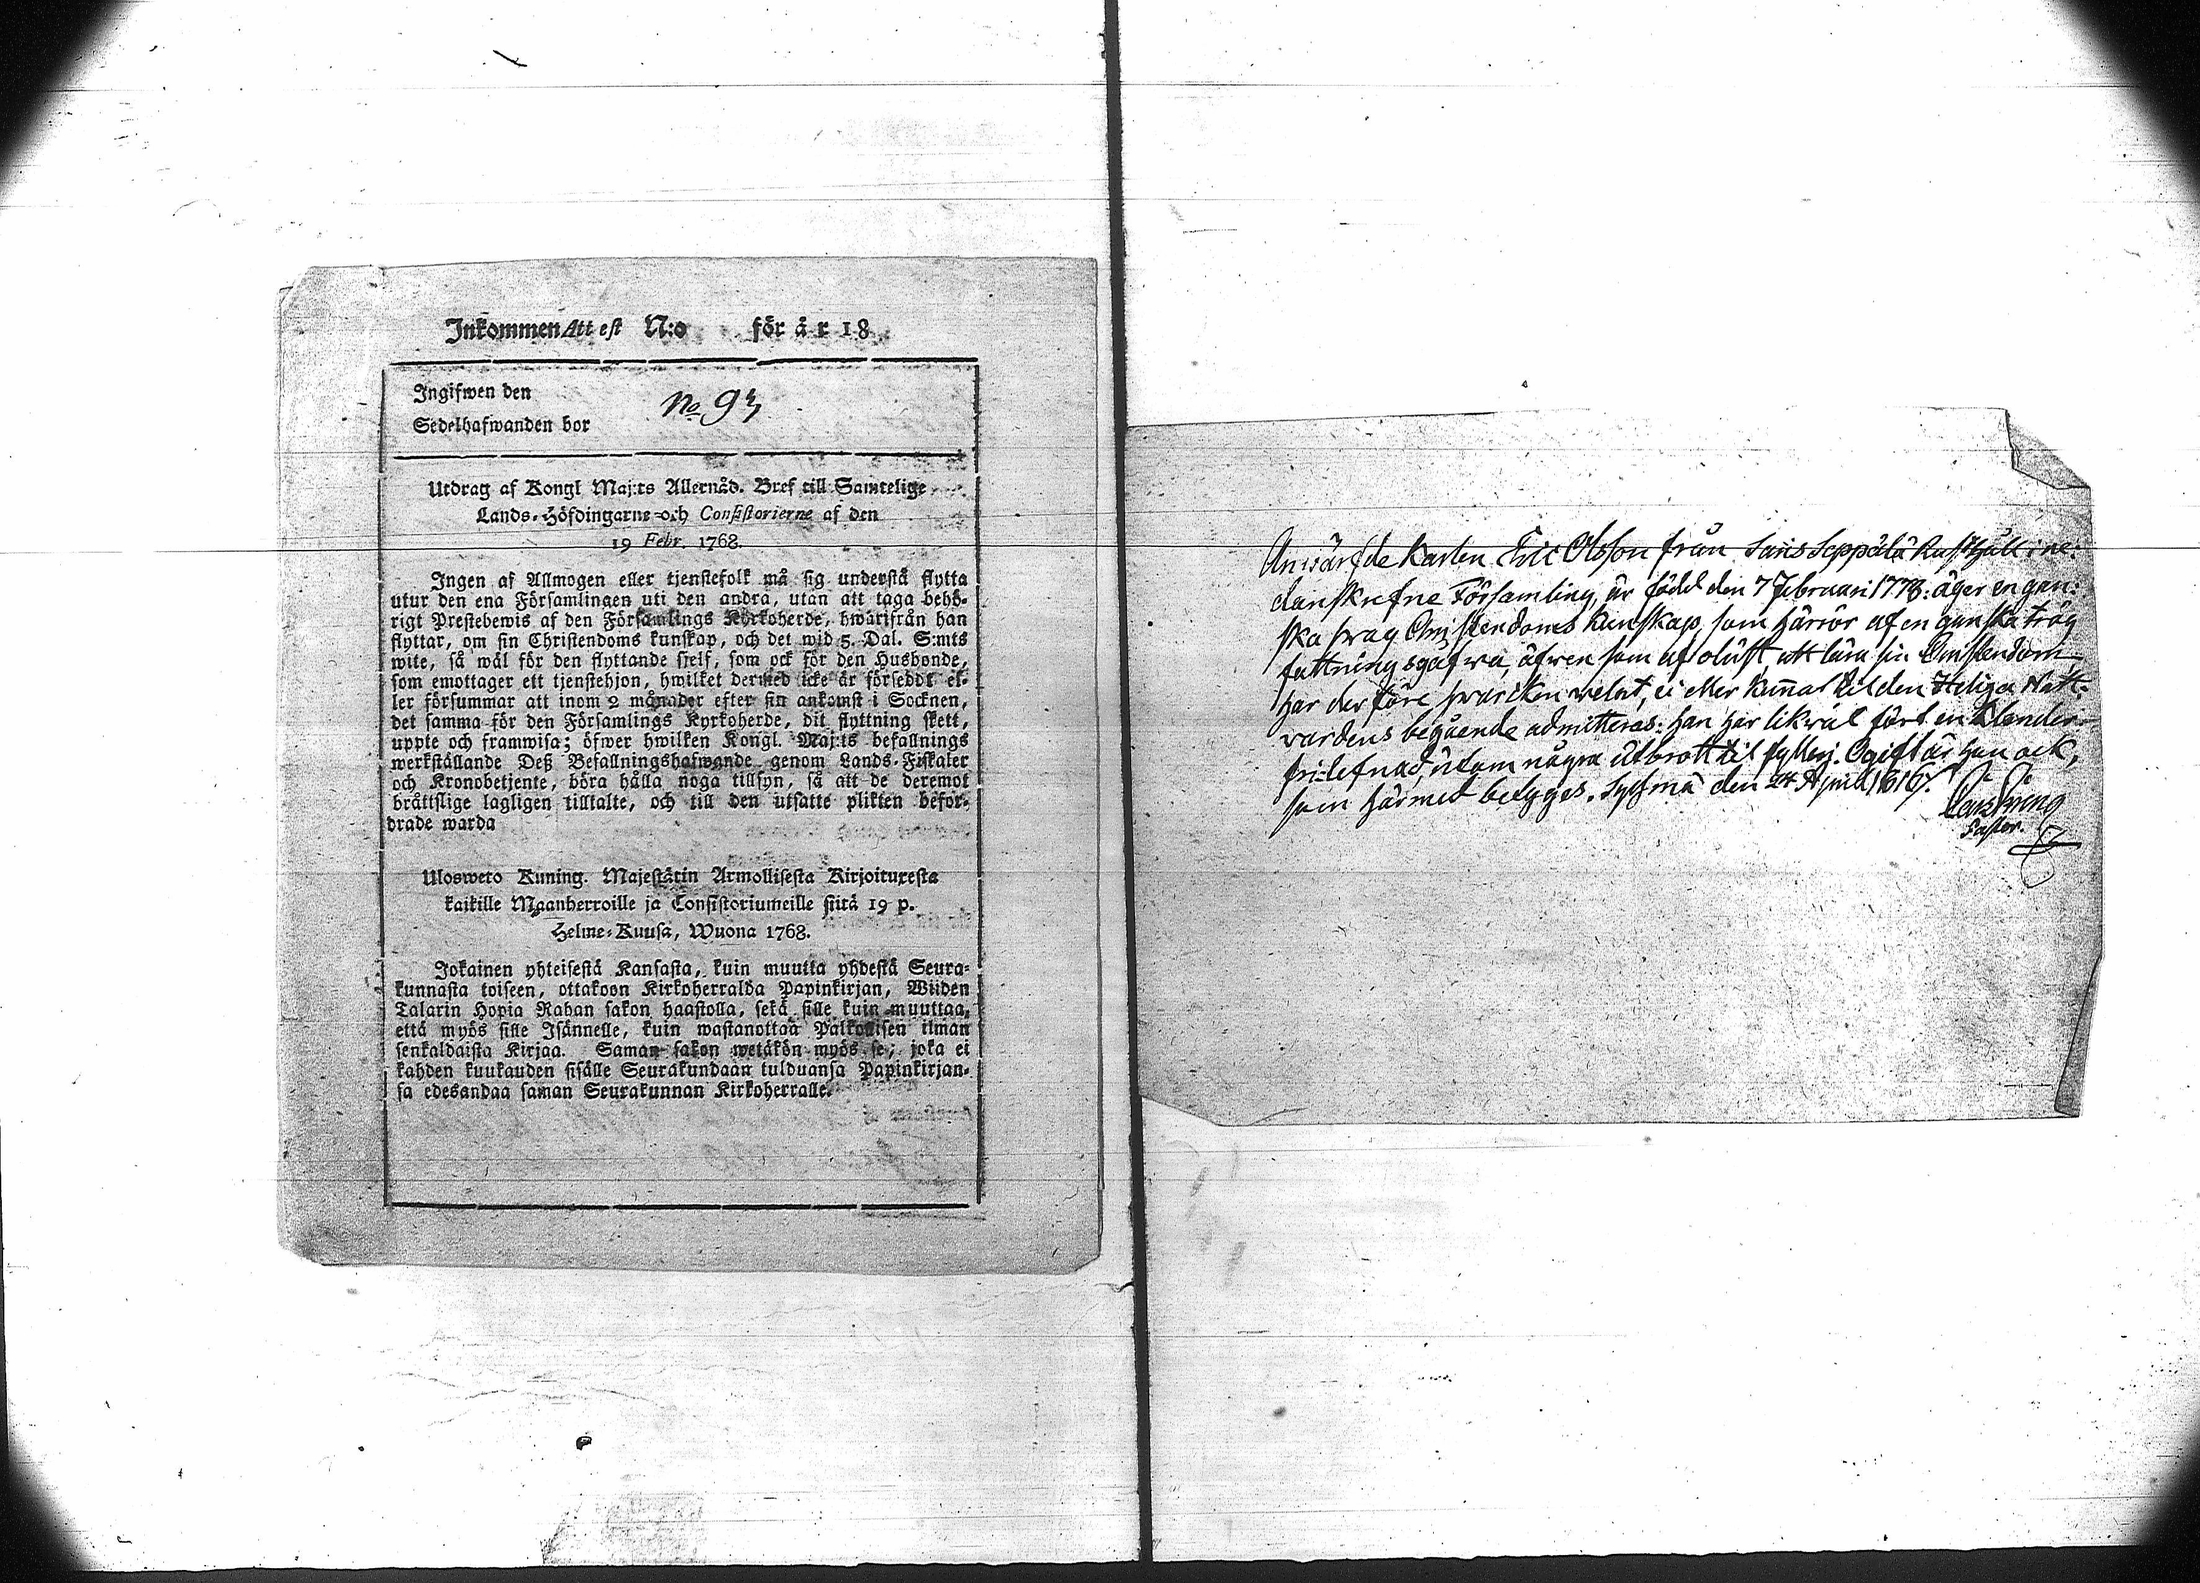 Inkommen Att est N:o för år 18
Ingifwen den
No 93
Sedelhafwanden bor
Utdrag af Kongl Maj:ts Allernåd. Bref till Samtelige
Lands-Höfdingarne och Consistorierne af den
19 Febr. 1768.
Ingen af Allmogen eller tjenstefolk må sig understå flytta
utur den ena Församlingen uti den andra, utan att taga behö-
rigt Prestebewis af den Församlings Kyrkoherde, hwarifrån han
flyttar, om sin Christendoms kunskap, och det wid 5. Dal. S:mts
wite, så wäl för den flyttande sielf, som ock för den Husbonde,
som emottager ett tjenstehjon, hwilket dermed icke är försedd: el-
ler försummar att inom 2 månader efter sin ankomst i Socknen,
det samma för den Församlings Kyrkoherde, dit flyttning skett,
uppte och framwisa; öfwer hwilken Kongl. Maj:ts befallnings
werkställande Deß Befallningshafwande genom Lands-Fiskaler
och Kronobetjente, böra hålla noga tillsyn, så att de deremot
bråttslige lagligen tilltalte, och till den utsatte plikten befor-
drade warda
Ulosweto Kuning. Majestätin Armollisesta Kirjoituxesta
kaikille Maanherroille ja Consistoriumeille siitä 19 p.
Helme-Kuusa, Wuona 1768.
Jokainen yhteisestä Kansasta, kuin muutta yhdestä Seura-
kunnasta toiseen, ottakoon Kirkoherralda Papinkirjan, Wiiden
Talarin Hopia Rahan sakon haastolla, sekä sille kuin muuttaa,
että myös sille Isännelle, kuin wastanottaa Palkollisen ilman
senkaldaista Kirjaa. Saman sakon wetäkön myös se, joka ei
kahden kuukauden sisälle Seurakundaan tulduansa Papinkirjan-
sa edesandaa saman Seurakunnan Kirkoherralle.
Anwärfde Karlen Eric Olsson från Saris Seppälä Rusthåll i ne-
danskrefne Församling, är född den 7 Februari 1778: äger en gan-
ska swag Christendoms Kunskap, som härrör af en ganska trög
fattningsgåfwa, äfwen som af olust, att lära sin Christendom,
har derföre hwarcken welat, ei eller kunnat til den Heliga Natt-
vardens begående admitteras: han har likwäl fört en klander-
fri lefnad, utom några utbrott til fylleri. Ogift är han ock,
som härmed betyges. Sysmä den 24 April 1816.
Pastor.